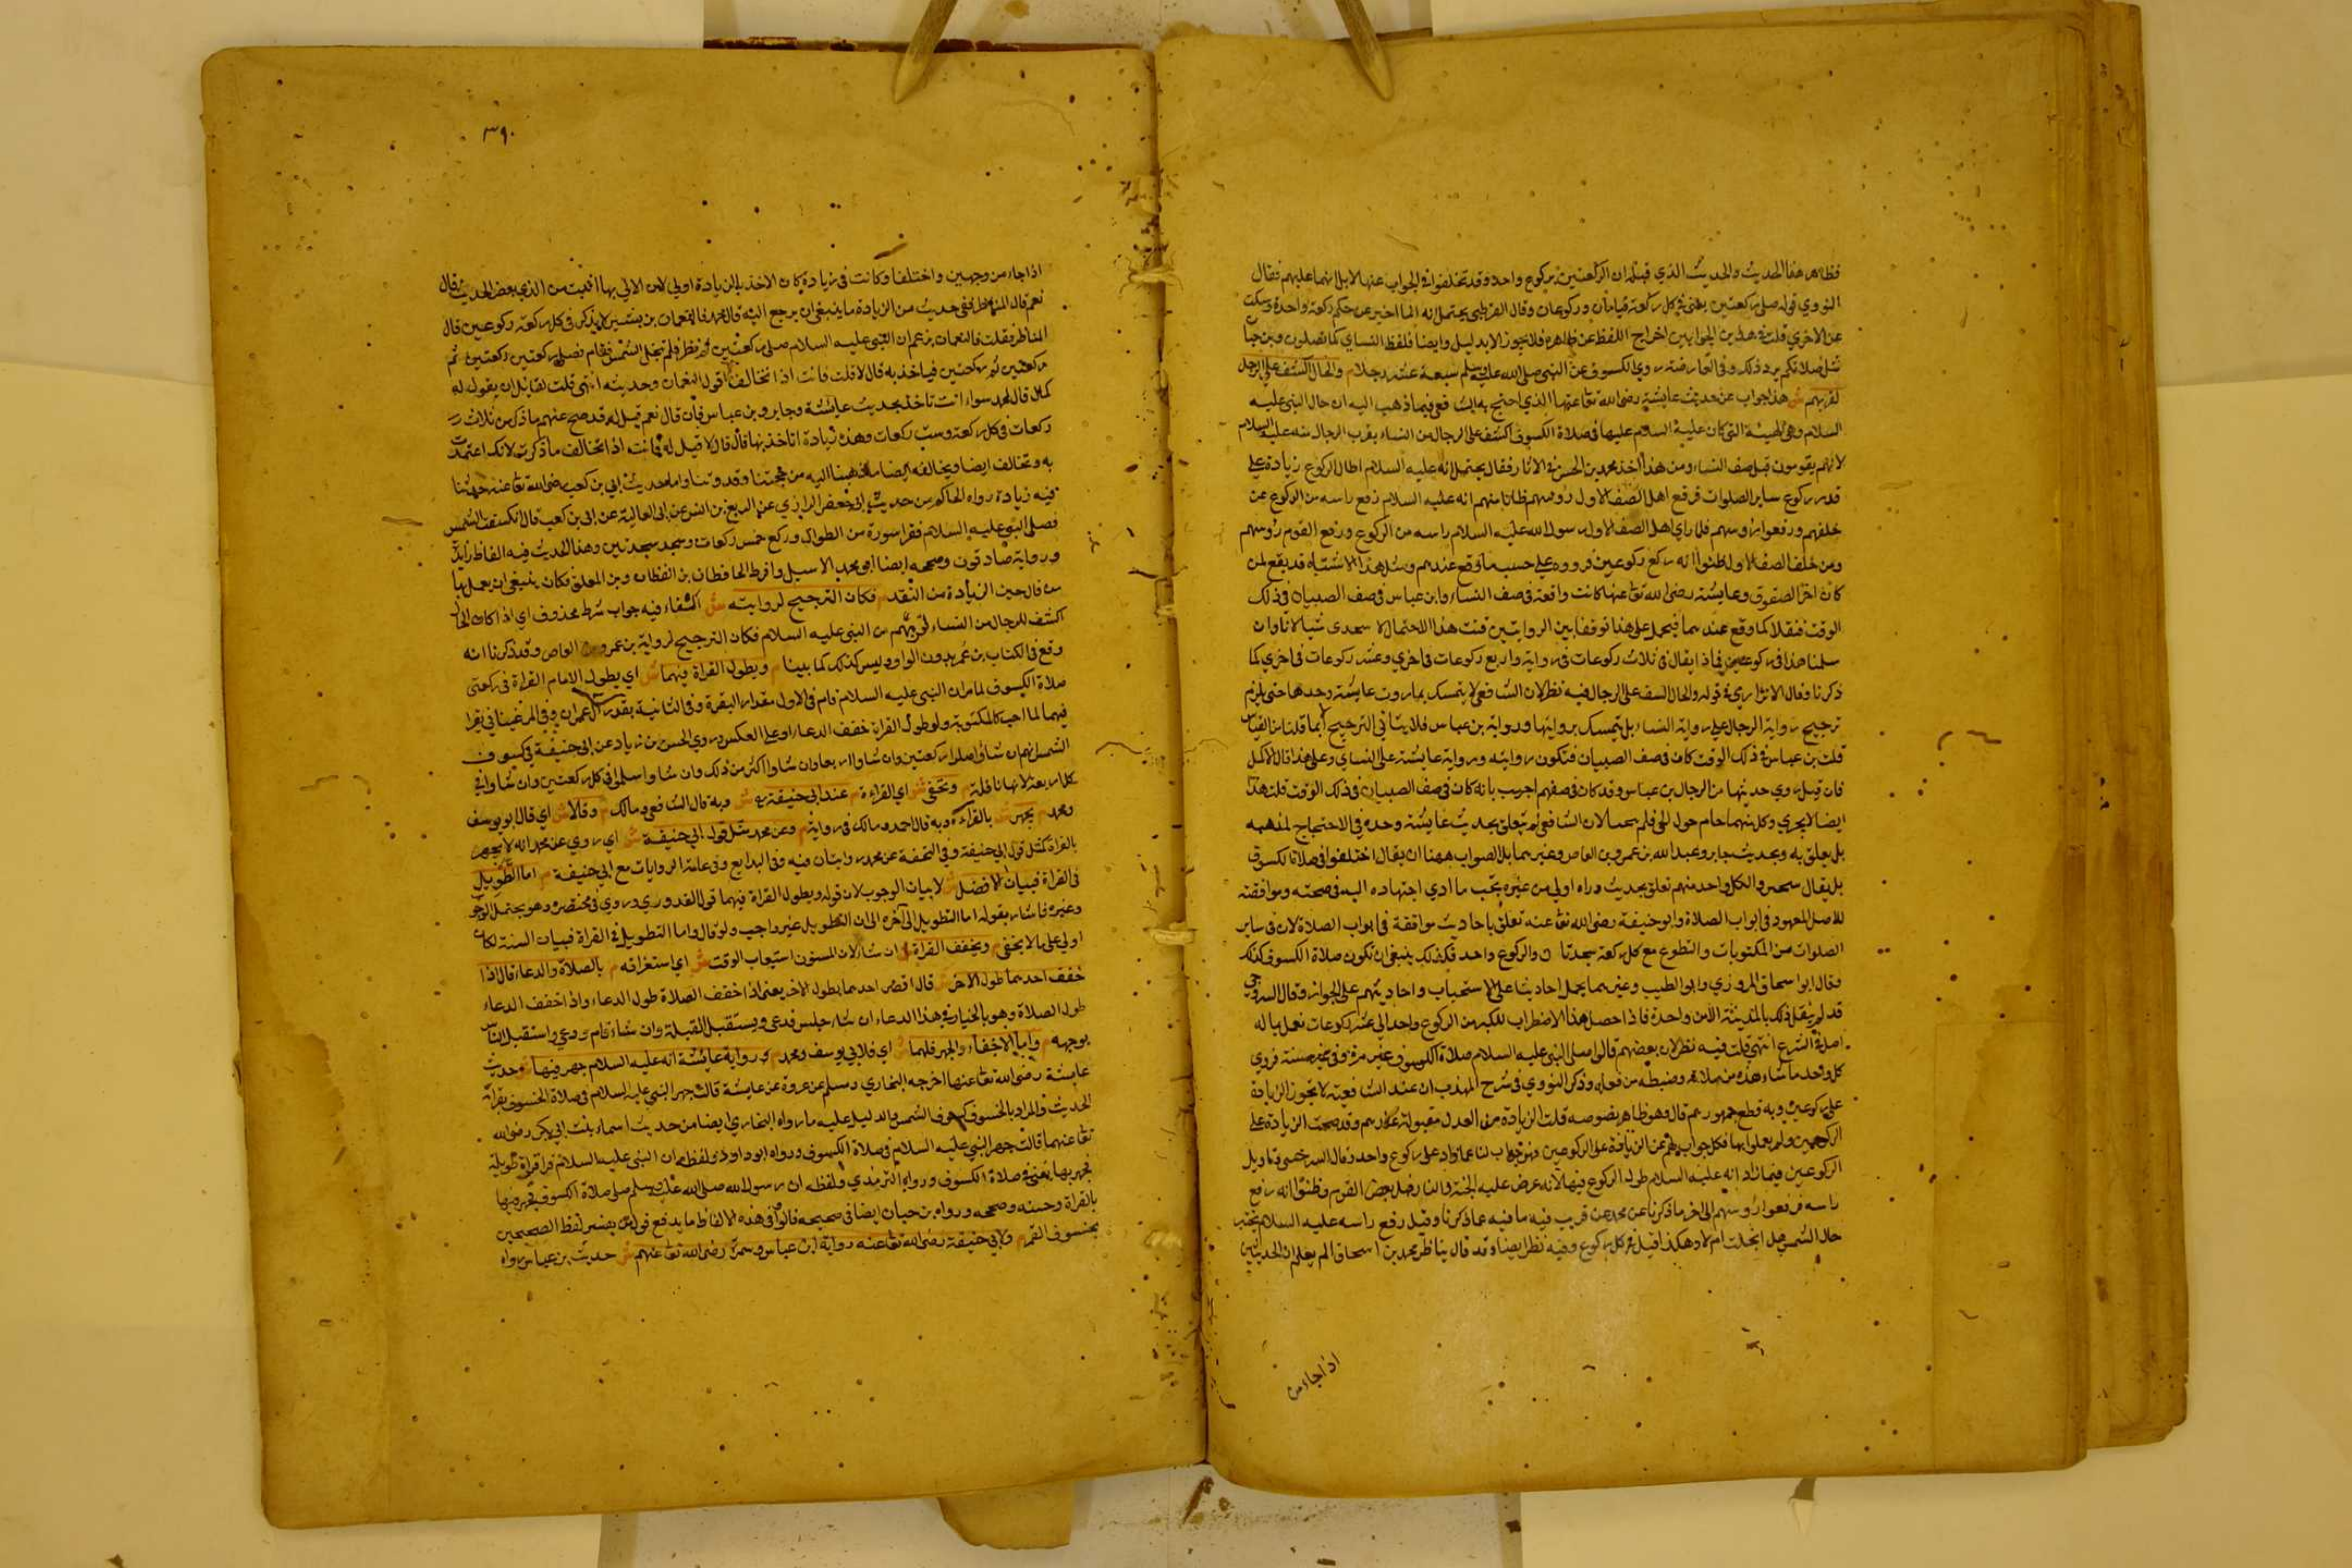 فظاهر هذا الحديث والحديث الذي قبله ان الركعتين بركوع واحد وقد تختلفوا في الجواب عنها لابل انهما عليهم فقال
النووي قوله صلى ركعتين يعني في كل ركعة قيامان وركوعان وقال القرطبي يحتمل انه انما اخبر عن حكم ركعة واحدة وسكت
عن الاخري قلت في هذين الجوابين اخراج اللفظ عن ظاهره فلا يجوز الا بدليل وايضا فلفظ النساي كما تصلون وبن حبا
مثل صلاتكم يرد ذلك وفي العارضة روي الكسوف عن النبي صلى الله عليه وسلم سبعة عشر رجلا م والحال اكشف على الرجال
لقربهم ش هذا جواب عن حديث عايشة رضى الله تعا عنها الذي احتج به الشافعي فيما ذهب اليه ان حال النبي عليه
السلام وهي الهيئة التي كان عليه السلام عليها في صلاة الكسوف اكشف على الرجال من النساء بقرب الرجال منه عليه السلام
لانهم يقومون قبل صف النساء ومن هذا اخذ محمد بن الحسن في الاثار فقال يحتمل انه عليه السلام اطال الركوع زيادة على
قدر ركوع ساير الصلوات فرفع اهل الصف الاول رؤسهم ظانا منهم انه عليه السلام رفع راسه من الركوع فمن
خلفهم ورفعوا رؤسهم فلما راي اهل الصف الاول رسول الله عليه السلام راسه من الركوع ورفع القوم رؤسهم
ومن خلف الصف الاول ظنوا انه ركع ركوعين فرووه على حسب ما وقع عندهم ومثل هذا الاشتباه قد يقع لمن
كان في اخر الصفوف وعايشة رضى الله تعا عنها كانت واقفة في صف النساء وابن عباس في صف الصبيان في ذلك
الوقت فنقلا كما وقع عندهما فيحمل على هذا توفيقا بين الروايتين قلت هذا الاحتمال لا يجدي شيا لانا وان
سلمنا هذا في ركوعين فماذا يقال في ثلاث ركوعات في رواية واربع ركوعات في اخري وعشر ركوعات في اخري كما
ذكرنا وقال الاترازي في قوله والحال اكشف على الرجال فيه نظر لان الشافعي لا يتمسك بما روت عايشة وحدها حتى يلزم
ترجيح رواية الرجال على رواية النساء بل يتمسك بروايتها ورواية بن عباس فلا ياتي الترجيح
قلت بن عباس في ذلك الوقت كان في صف الصبيان فتكون روايته ورواية عايشة على التساوي وعلى هذا قال الاكمل
فان قيل روي حديثها من الرجال بن عباس وقد كان في صفهم اجيب بانه كان في صف الصبيان في ذلك الوقت قلت هذا
ايضا لا يجري وكل منهما حام حول الحي فلم يحملا لان الشافعي لم يتعلق بحديث عايشة وحده في الاحتجاج لمذهبه
بل يتعلق به وبحديث جابر وعبد الله بن عمرو بن العاص وغيرهما بل الصواب ههنا ان يقال اختلفوا في صلاة الكسوف
بل يقال والكل واحد منهم تعلق بحديث وراه اولي من غيره بحسب ما ادي اجتهاده اليه في صحته وموافقته
للاصل المعهود في ابواب الصلاة وابو حنيفة رضى الله تعا عنه تعلق باحاديث موافقة في ابواب الصلاة لان في ساير
الصلوات من المكتوبات والتطوع مع كل ركعة سجدتان والركوع واحد فكذلك ينبغي ان تكون صلاة الكسوف كذلك
وقال ابو اسحاق المروزي وابو الطيب وغيرهما يحمل احاديثنا على الاستحباب واحاديثهم على الجواز وقال السروجي
قد لم ينقل ذلك بالمدينة الا من واحدة فاذا حصل هذا الاضطراب الكبير من الركوع واحد الي عشر ركوعات نعمل بما له
اصل في الشرع انتهي قلت فيه نظر لان بعضهم قالوا صلى النبي عليه السلام صلاة الكسوف غير مرة وفي غير سنة فروي
كل واحد ما شاهده من صلاته وضبطه من فعله وذكر النووي في شرح المهذب ان عند الشافعية لا تجوز الزيادة
على ركوعين وبه قطع جمهورهم قال وهو ظاهر نصوصه قلت الزيادة من العدل مقبولة عندهم وقد صحت الزيادة على
الركوعين ولم يعلوا بها فكل جواب لهم عن الزيادة على الركوعين فهو جواب لنا عما زاد على ركوع واحد وقال السرخسي وتاويل
الركوعين فيما زاد انه عليه السلام طول الركوع فيها لانه عرض عليه الجنة والنار فمل بعض القوم وظنوا انه رفع
راسه فرفعوا رؤسهم الى اخر ما ذكرنا عن محمد عن قريب فيه ما فيه عما ذكرنا وقيل رفع راسه عليه السلام يختبر
حال الشمس هل انجلت ام لا وهكذا فيل في كل ركوع وفيه نظر ايضا وقد قال يناظر محمد بن اسحاق الم يعلم ان الحديثين
اذا جاء من
٣٩٠
اذا جاء من وجهين واختلفا وكانت فيه زيادة كان الاخذ بالزيادة اولي لان الاتي بها اثبت من الذي بعض الحديث قال
نعم قال المناظر ففي حديث من الزيادة ما ينبغي ان يرجع اليه قال محمد فالنعمان بن بشير لا يذكر في كل ركعة ركوعين قال
المناظر فقلت فالنعمان يزعم ان النبي عليه السلام صلى ركعتين ثم نظر فلم تجل الشمس فقام فصلى ركعتين ركعتين ثم
ركعتين ثم ركعتين فياخذ به قال لا قلت فانت اذا تخالف اقول النعمان وحديثه انتهى قلت لقائل ان يقول له
كما قال لمحمد سواء انت تاخذ بحديث عايشة وجابر وبن عباس فان قال نعم قيل له قد صح عنهم ما ذكر من ثلاث
ركعات في كل ركعة وست ركعات وهذه زيادة اتاخذ بها قال قال لا قيل له فانت اذا تخالف ما ذكرت لانك اعتمدت
به وتخالف ايضا ويخالفه ايضا ما ذهبنا اليه من حجتنا وقد وتنا واما حديث ابي بن كعب رضى الله تعا عنه
فيه زيادة رواه الحاكم من حديث ابي جعفر الرازي عن الربيع بن انس عن ابي العالية عن ابي بن كعب قال انكسفت الشمس
فصلى النبي عليه السلام فقرا سورة من الطوال وركع خمس ركعات وسجد سجدتين وهذا الحديث فيه الفاظ زايدة
ورواية صادقون وصححه ايضا ابو محمد الاسبيل وافرط الحافظان بن القطان وبن المعلق فكان ينبغي ان يعمل بها
من قال حين الزيادة من الثقة م فكان الترجيح لروايته ش الفاء فيه جواب شرط محذوف اي اذا كان الحال
اكشف للرجال من النساء لقربهم من النبي عليه السلام فكان الترجيح لرواية بن عمرو بن العاص وقد ذكرنا انه
وقع في الكتاب بن عمر بدون الواو وليس كذلك كما بينا م ويطول القراة فيهما ش اي يطول الامام القراة في ركعتي
صلاة الكسوف لما مر ان النبي عليه السلام قام في الاول مقدار البقرة وفي الثانية بقدر آل عمران وفي المرغيناني يقرا
فيهما لما احب كالمكتوبة ولو طول القراة خفف الدعاء او على العكس وروي الحسن بن زياد عن ابي حنيفة في كسوف
الشمس انهم ان شاؤا صلوا ركعتين وان شاوا اربعا وان شاوا اكثر من ذلك وان شاوا سلموا في كل ركعتين وان شاوا في
كل اربعة لانها نافلة م وتخفى ش اي القراءة م عند ابي حنيفة ش وبه قال الشافعي ومالك م وقالا ش اي قال ابو يوسف
ومحمد م يجهر ش بالقراءة وبه قال احمد ومالك في رواية م وعن محمد مثل قول ابي حنيفة ش اي روي عن محمد انه لا يجهر
بالقراة كمثل قول ابي حنيفة وفي التحفة عن محمد روايتان فيه وفي البدايع وفي عامة الروايات مع ابي حنيفة م اما التطويل
في القراة فبيان الافضل ش لا بيان الوجوب لان قوله ويطول القراة فيهما قول القدوري وروي في مختصره وهو يحتمل الوجو
وغيره فاشار بقوله اما التطويل الى آخره الى ان التطويل غير واجب ولو قال واما التطويل في القراة فبيان السنة لكان
اولي على ما لا يخفى م ويخفف القراة ان شاء لان المسنون استيعاب الوقت ش اي استغراقه م بالصلاة والدعاء قال اذا
خفف احدهما طول الاخر ش قال اقصر احدهما يطول الاخر يعني اذا خفف الصلاة طول الدعاء واذا خفف الدعاء
طول الصلاة وهو بالخيار في هذا الدعاء ان شاء جلس فدعى ويستقبل القبلة وان شاء قام ودعي واستقبل الناس
بوجهه م واما الاخفاء والجهر فلهما ش اي فلابي يوسف ومحمد م رواية عايشة انه عليه السلام جهر فيها ش حديث
عايشة رضى الله تعا عنها اخرجه البخاري ومسلم عن عروة عن عايشة قالت جهر النبي عليه السلام في صلاة الخسوف بقراته
الحديث والمراد بالخسوف كسوف الشمس والدليل عليه ما رواه البخاري ايضا من حديث اسماء بنت ابي بكر رضى الله
تعا عنهما قالت جهر النبي عليه السلام في صلاة الكسوف ورواه ابو داود ولفظه ان النبي عليه السلام قرا قراة طويلة
فجهر بها يعني في صلاة الكسوف ورواه الترمذي ولفظه ان رسول الله صلى الله عليه وسلم صلى صلاة الكسوف فجهر فيها
بالقراة وحسنه وصححه ورواه بن حبان ايضا في صحيحه قالوا في هذه الالفاظ ما يدفع قول من يفسر لفظ الصحيحين
بخسوف القمر م ولابي حنيفة رضى الله تعا عنه رواية ابن عباس وسمرة رضى الله تعا عنهم ش حديث بن عباس رواه